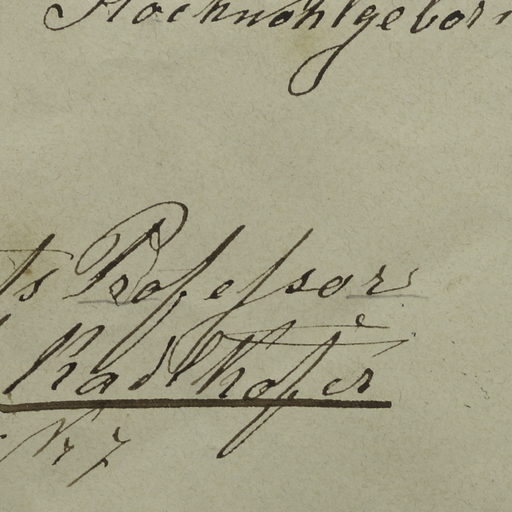 Hochwohlgebor
ts Professor
Radlkofer
Nr 7